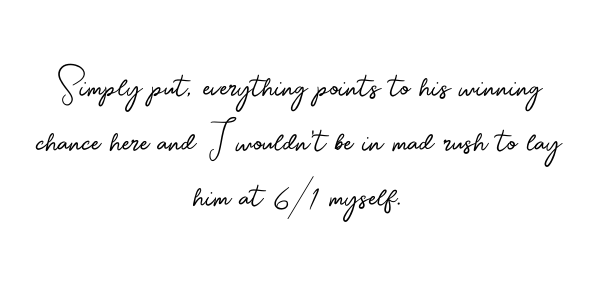 Simply put, everything points to his winning
chance here and I wouldn't be in mad rush to lay
him at 6/1 myself.